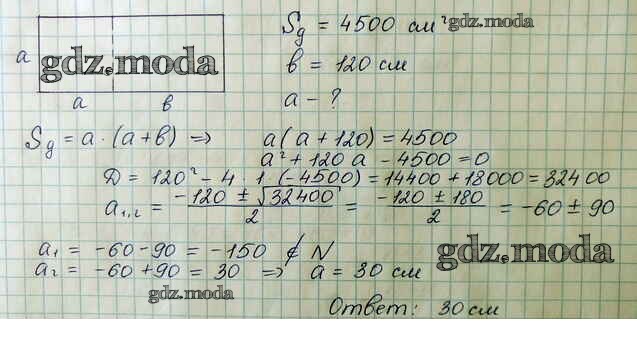 S_g = 4500 см² gdz.moda
a gdz.moda
в = 120 см
a в
a - ?
S_g = a · (a + в) ⇒ a(a + 120) = 4500
a² + 120a - 4500 = 0
D = 120² - 4 · 1 · (-4500) = 14400 + 18000 = 32400
a₁,₂ = (-120 ± √32400)/2 = (-120 ± 180)/2 = -60 ± 90
a₁ = -60 - 90 = -150 ∉ N
gdz.moda
a₂ = -60 + 90 = 30 ⇒ a = 30 см
gdz.moda
Ответ: 30 см